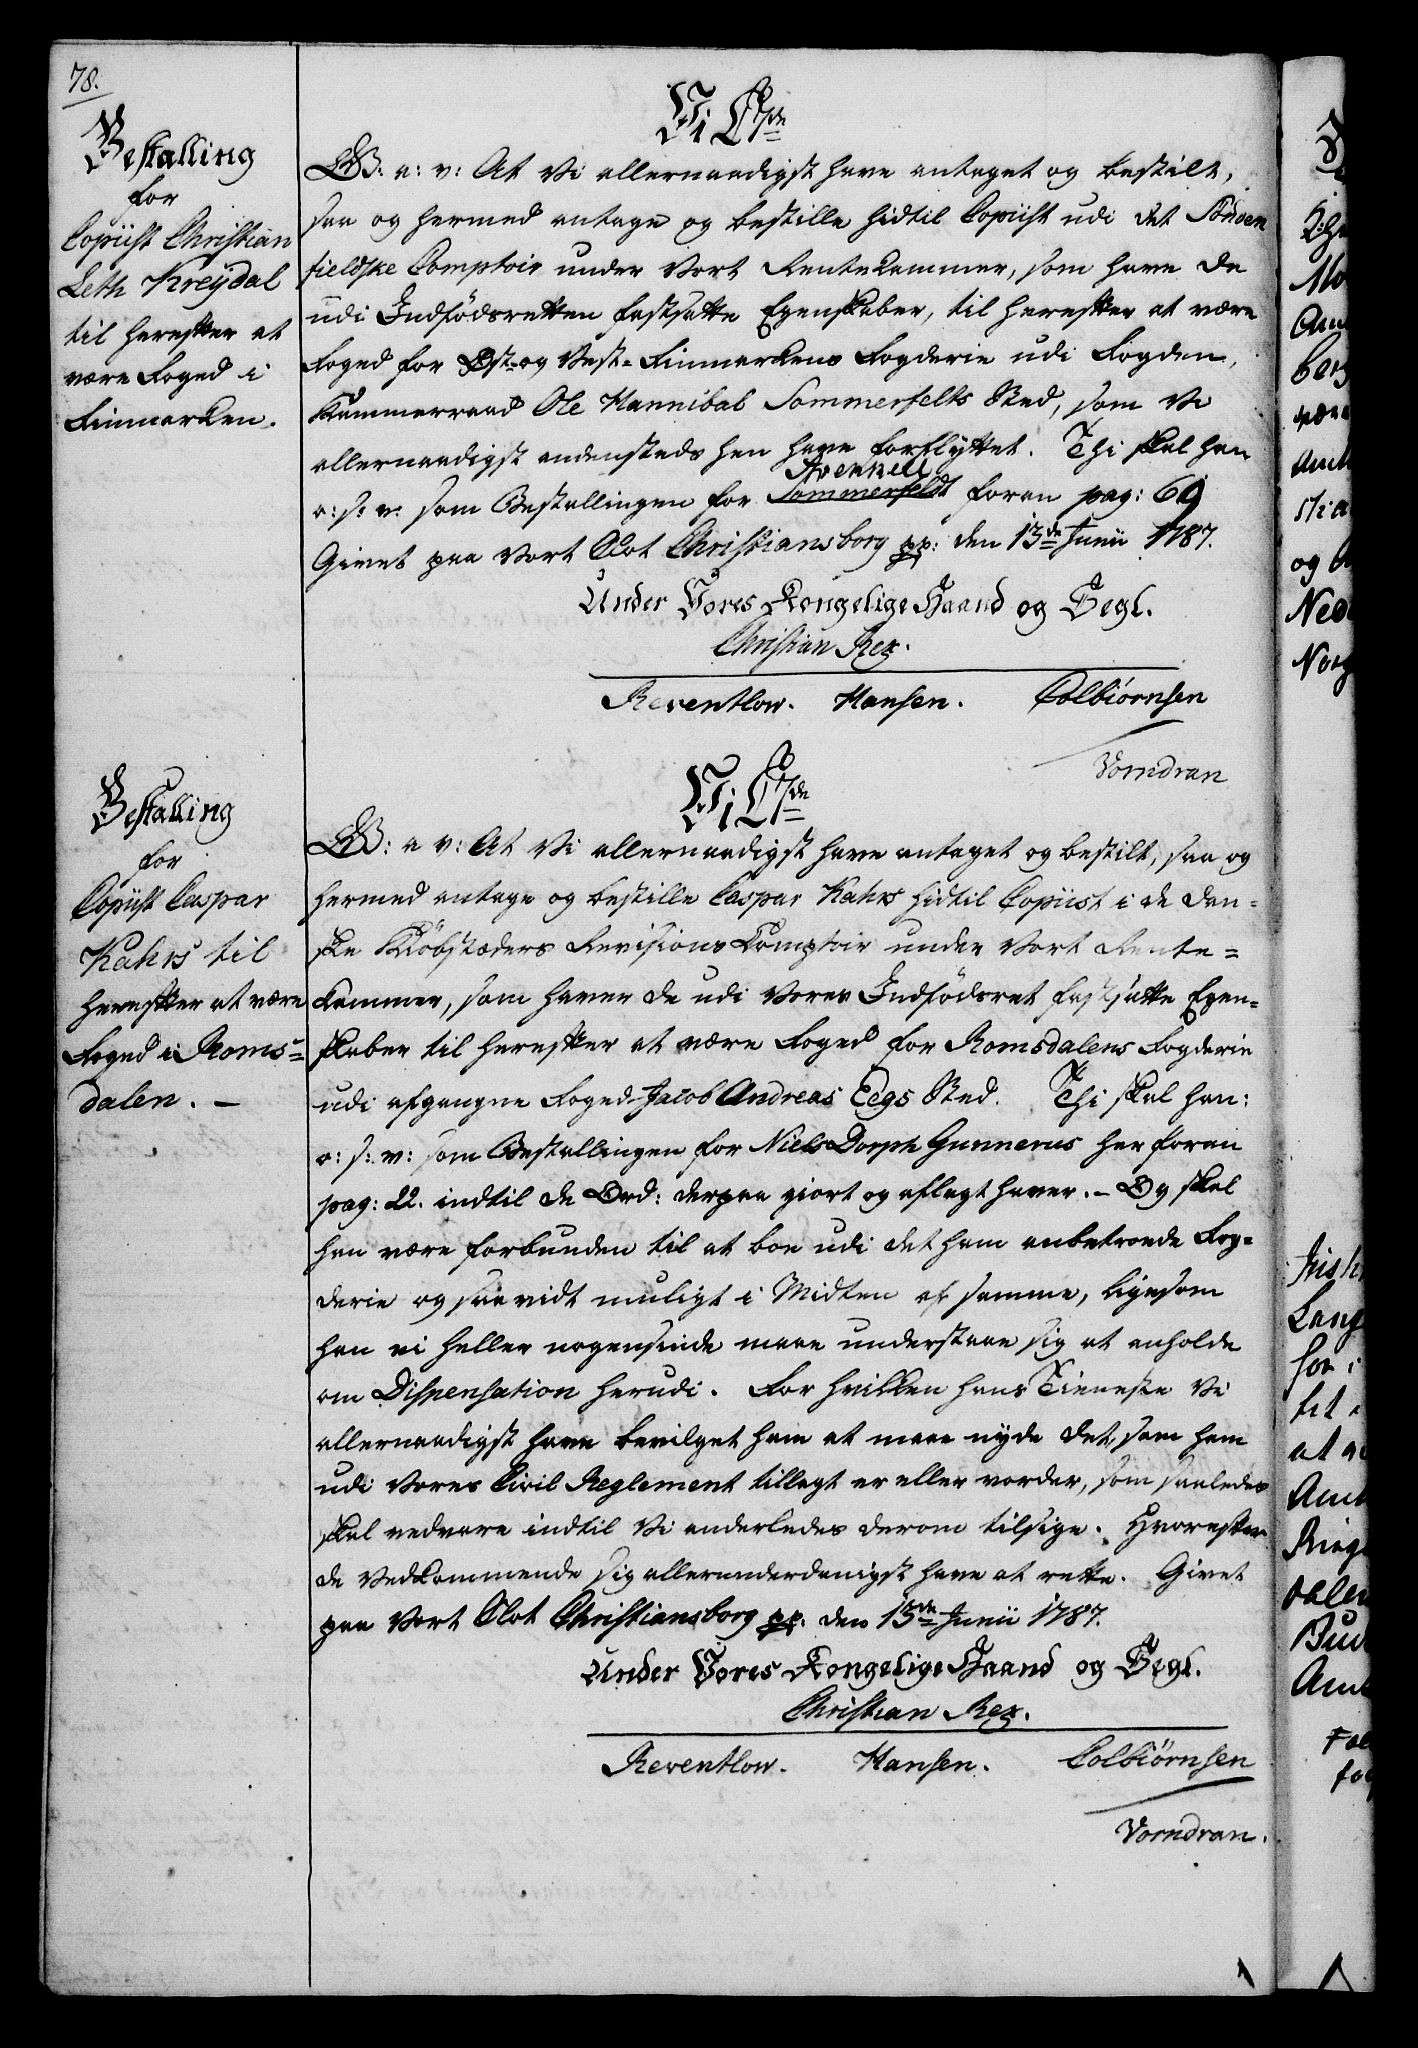 78.
Bestalling
for
Copiist Christian
Leth Kreÿdal
til herefter at
være Foged i
Finmarken.
Vi C 7de
G: a: v: At Vi allernaadigst have antaget og bestilt,
saa og hermed antage og bestille hidtil Copiist udi det Sönden
fieldske Comptoir under Vort Rentekammer, som have de
udi Indfödsretten fastsatte Egenskaber, til herefter at være
Foged for Öst- og Vest-Finmarkens Fogderie udi Fogden,
Kammerraad Ole Hannibal Sommerfelts Sted, som Vi
allernaadigst andensteds hen have forflyttet. Thi skal han
Avennell
o: s: v: som Bestallingen for Sommerfeldt foran pag: 69
Givet paa Vort Slot Christiansborg pp: den 13de Junii 1787.
Under Vores Kongelige Haand og Segl.
Christian Rex.
Reventlow. Hansen. Colbiørnsen
Vorndran
Bestalling
for
Copiist Caspar
Kahrs til
herefter at være
Foged i Roms=
dalen. —
Vi C 7de
G: a v: At Vi allernaadigst have antaget og bestilt, saa og
hermed antage og bestille Caspar Kahrs hidtil Copiist i de Dan-
ske Kiöbstæders Revisions Comptoir under Vort Rente=
kammer, som haver de udi Vores Indfödsret fastsatte Egen-
skaber til herefter at være Foged for Romsdalens Fogderie
udi afgangne Foged Jacob Andreas Eegs Sted. Thi skal han:
o: s: v: som Bestallingen for Niels Dorph Gunnerus her foran
pag: 22. indtil de Ord: derpaa giort og aflagt haver. – Og skal
han være forbunden til at boe udi det ham anbetroede Fog=
derie og saavidt muligt i Midten af samme, ligesom
han ei heller nogensinde maae understaae sig at anholde
om Dispensation herudi. For hvilken hans Tieneste Vi
allernaadigst have bevilget ham at maae nyde det, som ham
udi Vores Civil Reglement tillagt er eller vorder, som saaledes
skal vedvare indtil Vi anderledes derom tilsige. Hvorefter
de Vedkommende sig allerunderdanigst have at rette. Givet
paa Vort Slot Christiansborg pp. den 13de Junii 1787.
Under Vores Kongelige Haand og Segl.
Christian Rex.
Reventlow. Hansen. Colbiørnsen
Vorndran.